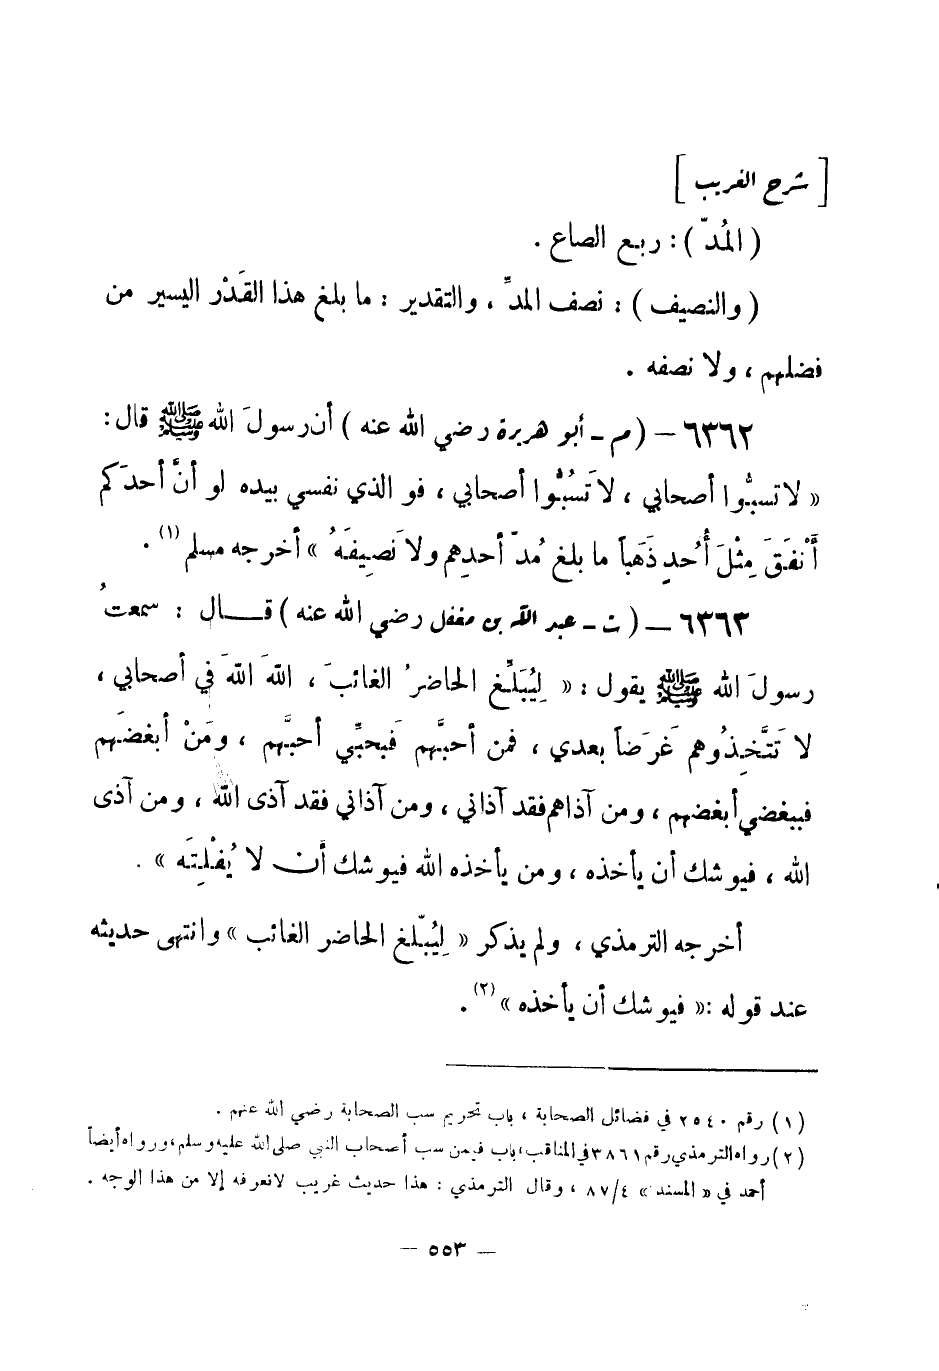 [ شرح الغريب ]
( المُدّ ) : ربع الصاع .
( والنصيف ) : نصف المدِّ ، والتقدير : ما بلغ هذا القَدْر اليسير من
فضلهم ، ولا نصفه .
٦٣٦٢ – ( م - أبو هريرة رضي الله عنه ) أن رسولَ الله ﷺ قال :
« لا تسبُّوا أصحابي ، لا تَسُبُّوا أصحابي ، فو الذي نفسي بيده لو أنَّ أحدَكم
أَنْفَقَ مِثْلَ أُحدٍ ذَهَباً ما بلغ مُدّ أحدِهم ولا نَصِيفَهُ » أخرجه مسلم (١) .
٦٣٦٣ – ( ت - عبد الله بن مغفل رضي الله عنه ) قــال : سمعتُ
رسولَ الله ﷺ يقول : « لِيُبَلِّغ الحاضرُ الغائبَ ، اللهَ اللهَ في أصحابي ،
لا تَتَّخِذُوهم غَرَضاً بعدي ، فمن أحبَّهم فَبحبِّي أحبَّهم ، ومَنْ أبغضَهم
فببغضي أبغضهم ، ومن آذاهم فقد آذاني ، ومن آذاني فقد آذى الله ، ومن آذى
الله ، فيوشك أن يأخذه ، ومن يأخذه الله فيوشك أن لا يُفْلِتَه » .
أخرجه الترمذي ، ولم يذكر « لِيُبّلغ الحاضر الغائب » وانتهى حديثه
عند قوله : « فيوشك أن يأخذه » (٢) .
(١) رقم ٢٥٤٠ في فضائل الصحابة ، باب تحريم سب الصحابة رضي الله عنهم .
(٢) رواه الترمذي رقم ٣٨٦١ في المناقب ، باب فيمن سب أصحاب النبي صلى الله عليه وسلم ، ورواه أيضاً
أحمد في « المسند » ٨٧/٤ ، وقال الترمذي : هذا حديث غريب لا نعرفه إلا من هذا الوجه .
– ٥٥٣ –